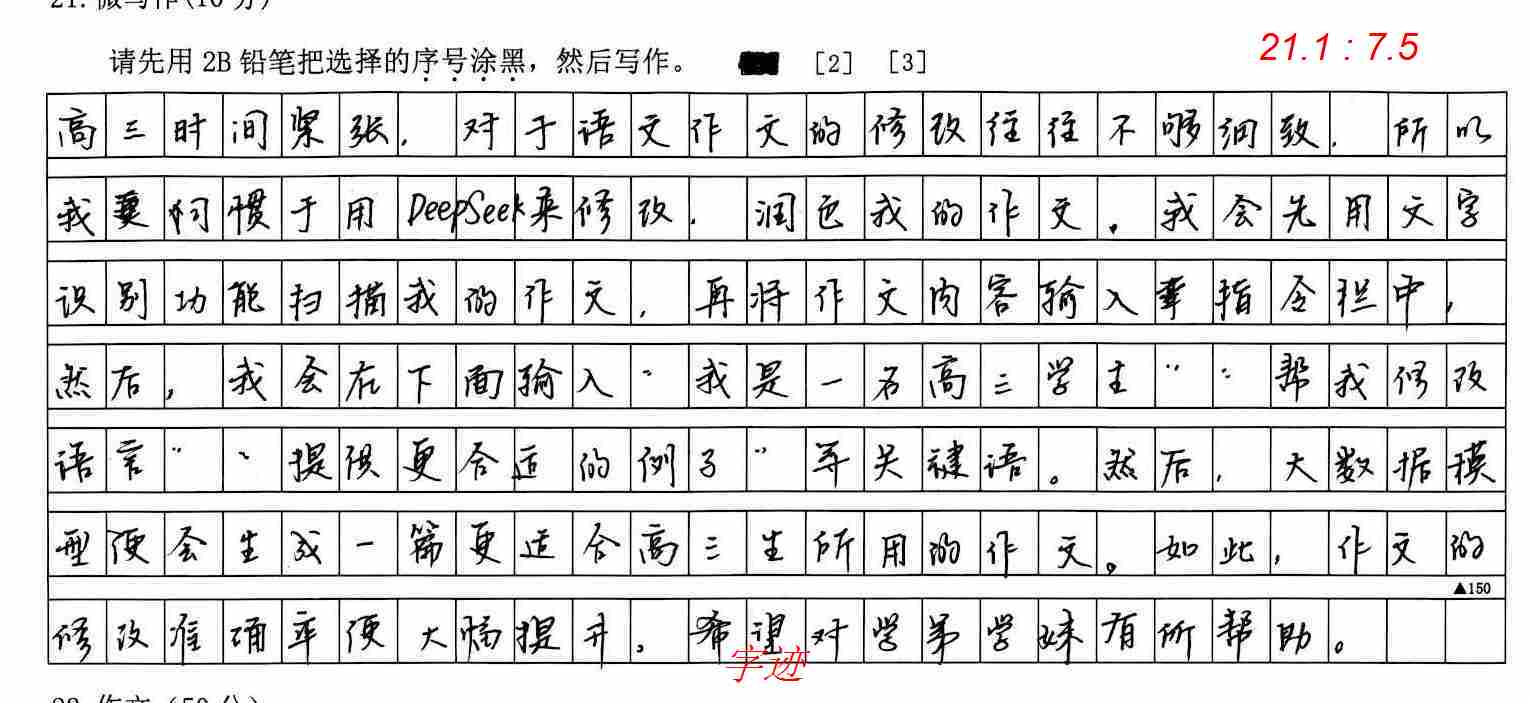 21. 微写作(10分)
请先用 2B 铅笔把选择的序号涂黑，然后写作。 [2] [3]
21.1 : 7.5
高三时间紧张，对于语文作文的修改往往不够细致，所以
我 习惯于用DeepSeek来修改，润色我的作文。我会先用文字
识别功能扫描我的作文，再将作文内容输入 指令栏中，
然后，我会在下面输入“我是一名高三学生”“帮我修改
语言”“提供更合适的例子”等关键语。然后，大数据模
型便会生成一篇更适合高三生所用的作文。如此，作文的
▲150
修改准确率便大幅提升，希望对学弟学妹有所帮助。
字迹
22. 作文 (50分)